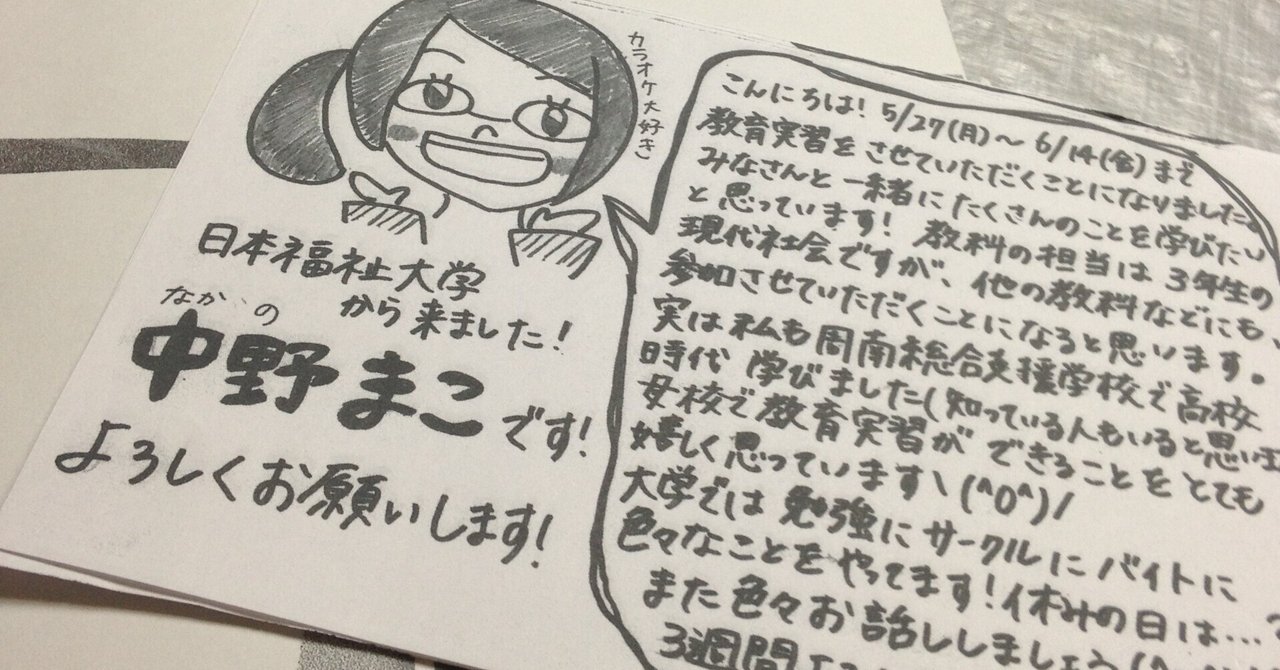 カラオケ大好き
日本福祉大学
から来ました!
なかの
中野まこです!
よろしくお願いします!
こんにちは! 5/27(月)〜 6/14(金)まで
教育実習をさせていただくことになりました。
みなさんと一緒にたくさんのことを学びたい
と思っています! 教科の担当は3年生の
現代社会ですが、他の教科などにも、
参加させていただくことになると思います。
実は私も周南総合支援学校で高校
時代 学びました(知っている人もいると思い
母校で教育実習ができることをとても
嬉しく思っています\(^0^)/
大学では 勉強にサークルにバイトに
色々なことをやってます!休みの日は…?
また色々お話ししましょう
3週間よろ